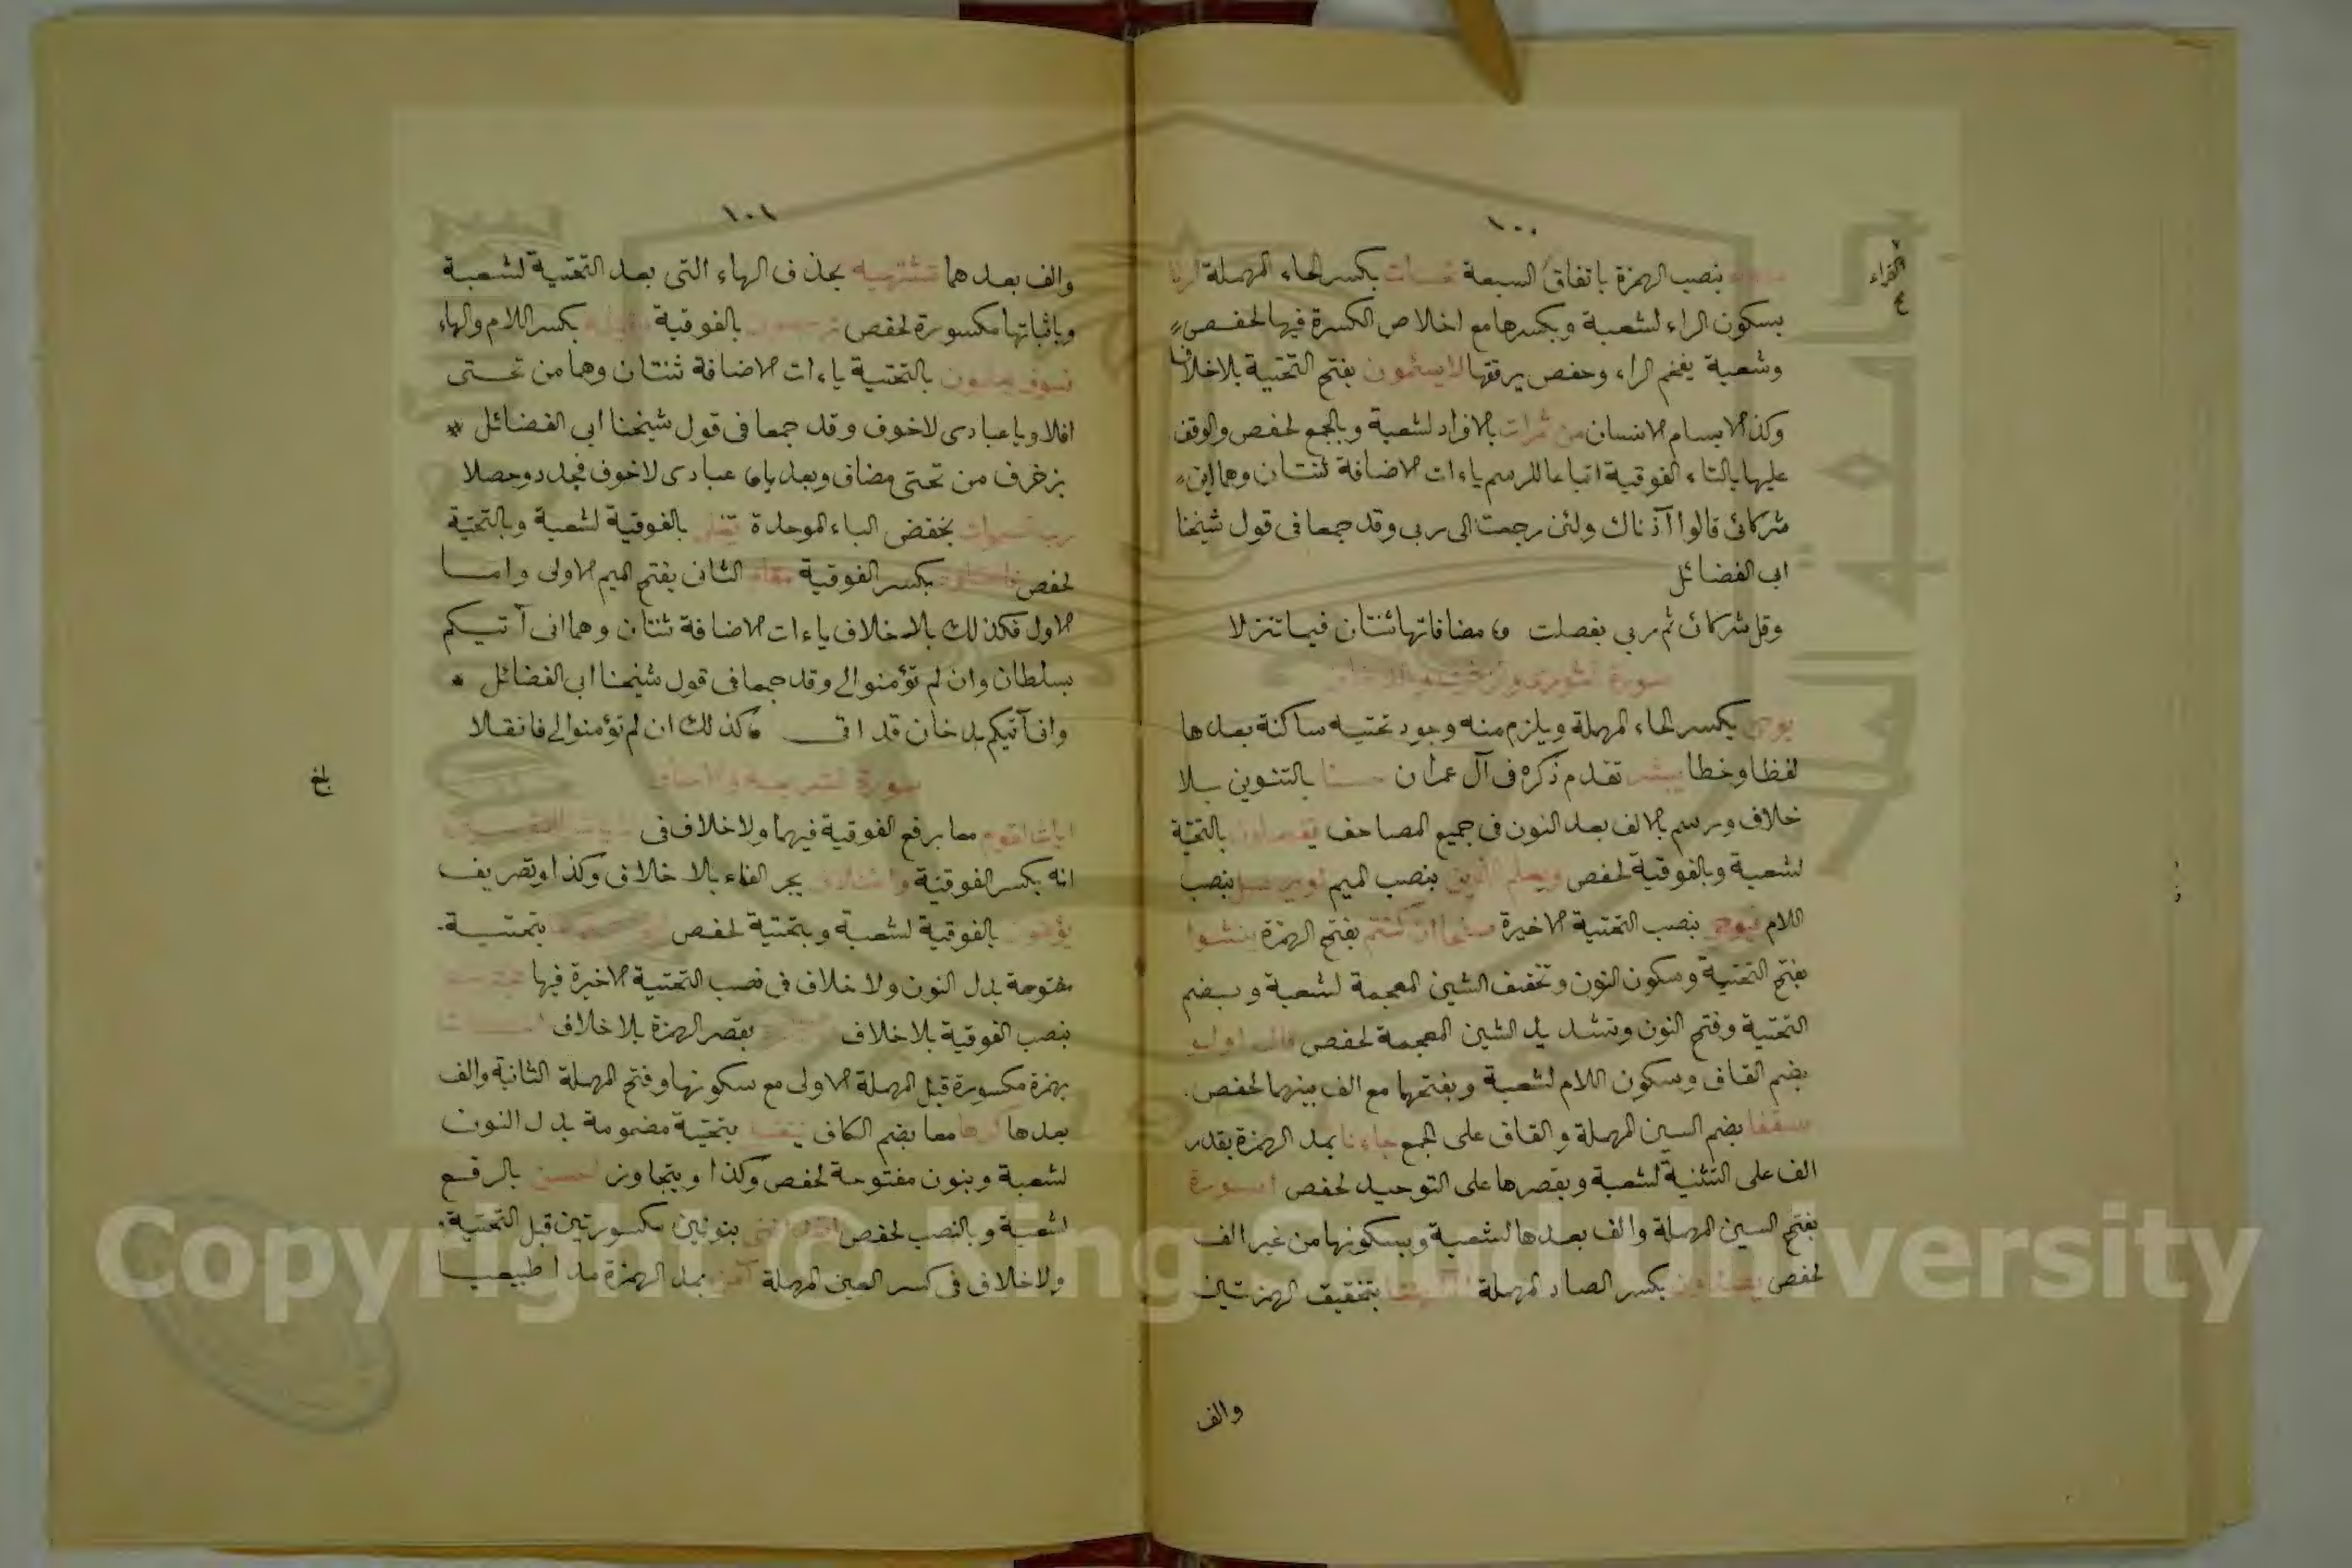 ١٠٠
القراء
بنصب الهمزة باتفاق السبعة نحسات بكسر الحاء المهملة ارنا
بسكون الراء لشعبة وبكسرها مع اخلاص الكسرة فيها لحفص
وشعبة يفخم الراء وحفص يرققها لا يسئمون بفتح التحتية بلا خلاف
وكذا لا يسام الانسان من ثمرات بالافراد لشعبة وبالجمع لحفص والوقف
عليها بالتاء الفوقية اتباعا للرسم ياءات الاضافة ثنتان وهما اين
شركائى قالوا آذناك ولئن رجعت الى ربى وقد جمعا فى قول شيخنا
ابى الفضائل
وقل شركائ ثم ربي بفصلت مضافاتها ثنتان فيها تنزلا
سورة الشورى والزخرف والدخان
يوحى بكسر الحاء المهملة ويلزم منه وجود تحتيه ساكنة بعدها
لفظا وخطا يبشر تقدم ذكره فى آل عمران حسنا بالتنوين بلا
خلاف ورسم بالالف بعد النون فى جميع المصاحف تفعلون بالتحتية
لشعبة وبالفوقية لحفص ويعلم الذين بنصب الميم او يرسل بنصب
اللام فيوحى بنصب التحتية الاخيرة صفحا ان كنتم بفتح الهمزة ينشوا
بفتح التحتية وسكون النون وتخفيف الشين المعجمة لشعبة وبضم
التحتية وفتح النون وتشديد الشين المعجمة لحفص قال اولو
بضم القاف وسكون اللام لشعبة وبفتحهما مع الف بينهما لحفص
سقفا بضم السين المهملة والقاف على الجمع جاءنا بمد الهمزة بقدر
الف على التثنية لشعبة وبقصرها على التوحيد لحفص اسورة
بفتح السين المهملة والف بعدها لشعبة وبسكونها من غير الف
لحفص يصدون بكسر الصاد المهملة بتحقيق الهمزتين
والف
١٠١
والف بعدهما تشتهيه بحذف الهاء التى بعد التحتية لشعبة
وباثباتها مكسورة لحفص ترجعون بالفوقية وقيله بكسر اللام والهاء
فسوف يعلمون بالتحتية ياءات الاضافة ثنتان وهما من تحتى
افلا ويا عبادى لا خوف وقد جمعا فى قول شيخنا ابى الفضائل
بزخرف من تحتى مضاف وبعد يا عبادى لا خوف فجد دوحصلا
رب السموات بخفض الباء الموحدة تغلى بالفوقية لشعبة وبالتحتية
لحفص فاعتلوه بكسر الفوقية مقام الثان بفتح الميم الاولى واما
الاول فكذلك بلا خلاف ياءات الاضافة ثنتان وهما انى آتيكم
بسلطان وان لم تؤمنوا لى وقد جمعا فى قول شيخنا ابى الفضائل
وانى آتيكم بدخان قد اتى كذلك ان لم تؤمنوا لى فانقلا
سورة الشريعة والاحقاف
بلغ
ايات لقوم معا برفع الفوقية فيهما ولا خلاف فى
انه بكسر الفوقية واختلاف بجر الفاء بلا خلاف وكذا وتصريف
يؤمنون بالفوقية لشعبة وبتحتية لحفص بتحتية
مفتوحة بدل النون ولا خلاف فى نصب التحتية الاخيرة فيها
بنصب الفوقية بلا خلاف بقصر الهمزة بلا خلاف احسانا
بهمزة مكسورة قبل المهملة الاولى مع سكونها وفتح المهملة الثانية والف
بعدها كرها معا بضم الكاف يتقبل بتحتية مضمومة بدل النون
لشعبة وبنون مفتوحة لحفص وكذا ويتجاوز احسن بالرفع
لشعبة وبالنصب لحفص اتعداننى بنونين مكسورتين قبل التحتية
ولا خلاف فى كسر العين المهملة آمن بمد الهمزة مدا طبيعيا
Copyright © King Saud University